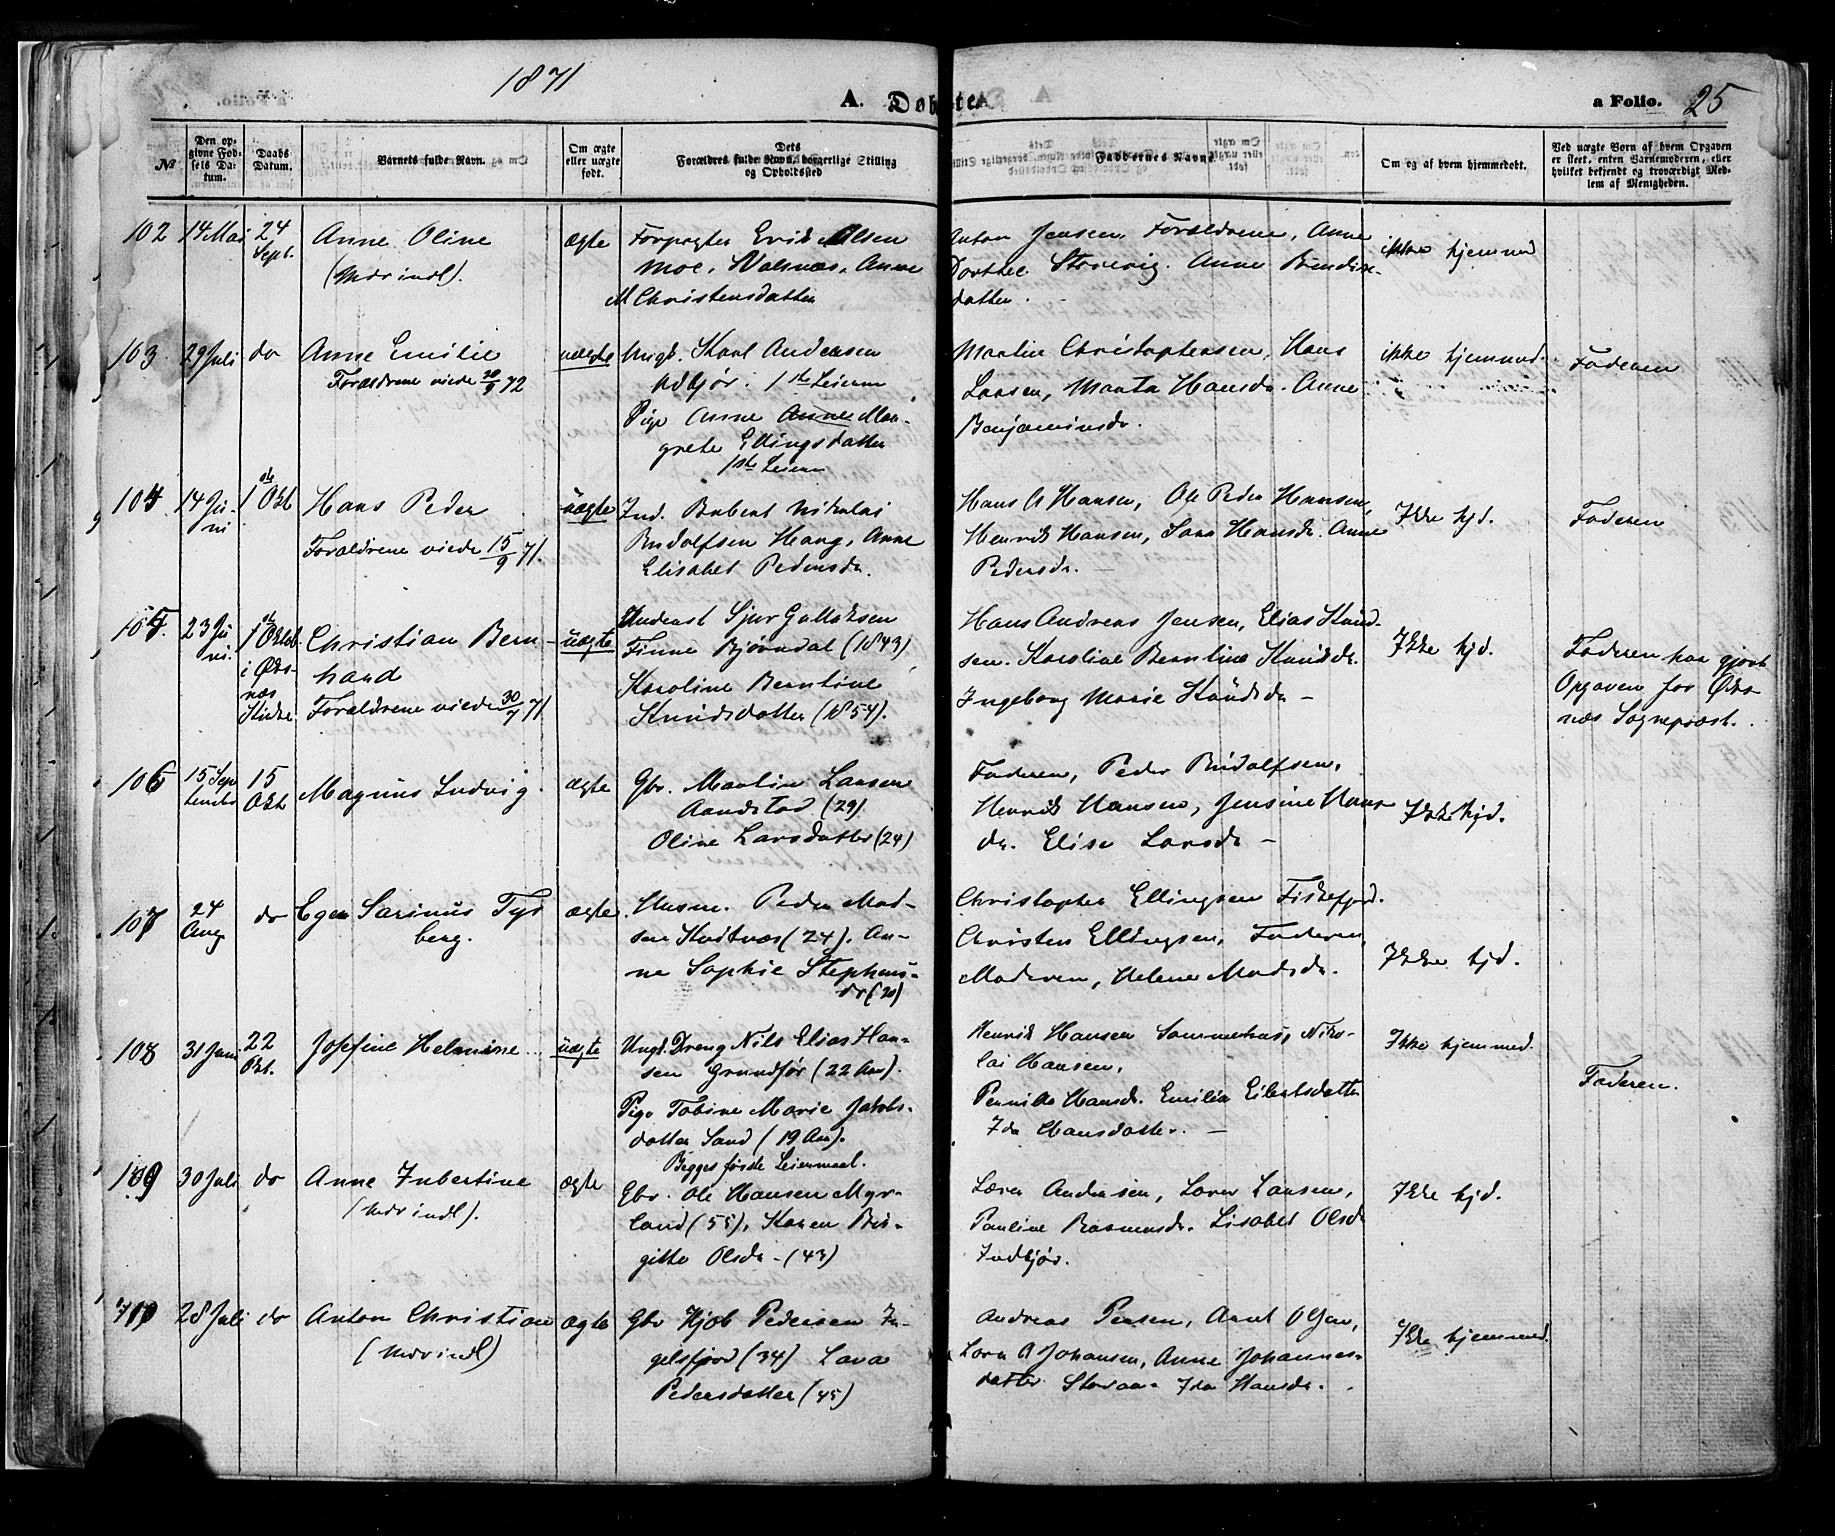 1871
A. Døbte.
a Folio. 25
№
Den opgivne Fødsels Datum.
Daabs Datum.
Barnets fulde Navn.
Om ægte eller uægte født.
Dets Forældres fulde Navn, borgerlige Stilling og Opholdssted
Faddernes Navne
Om og af hvem hjemmedøbt.
Ved uægte Børn af hvem Opgaven er skeet, enten Barnemoderen, eller hvilket bekjendt og troværdigt Medlem af Menigheden.
102 14 Mai 24 Sept. Anne Oline
(Mdr indl).
ægte
Forpagter Erik Olsen
Moe, Valsnæs, Anne
M Christensdatter
Anton Jensen, Forældrene, Anne
Dorthee Storevig. Anne Bendix-
datter.
ikke hjemmed
103 29 Juli do Anne Emilie
Forældrene viede 20/9 72
uægte
Ungk. Karl Andersen
1ste Leierm
Pige Anne Anne Mar-
grete Ellingsdatter
1ste Leierm
Martin Christophersen, Hans
Larsen, Marta Hansdr. Anne
Benjaminsdr.
ikke hjemmed.
Faderen
104 14 Juni 1ste Okt Hans Peder
Forældrene viede 15/9 71.
uægte
Ind. Robert Nikolai
Rudolfsen Haug, Anne
Elisabet Pedersdr.
Hans A Hansen, Ole Peder Hansen,
Henrik Hansen, Sara Hansdr. Anne
Pedersdr. —
Ikke hjd.
Faderen
105. 23 Juni. 1ste Oktob i Øksnæs Kirke Christian Bern-
hard
Forældrene viede 30/7 71
uægte
Inderst Sjur Gullaksen
Finne Bjørndal (1843)
Karoline Berntine
Knudsdatter (1854).
Hans Andreas Jensen, Elias Knud-
sen. Karoline Berntine Knudsdr.
Ingeborg Marie Knudsdr —
Ikke hjd.
Faderen har gjort
Opgaven for Øks-
næs Sognepræst.
106 15 September 15 Okt Magnus Ludvig.
ægte
Gbr. Martin Larsen
Aandstad (29)
Oline Larsdatter (24)
Faderen, Peder Rudolfsen,
Henrik Hansen, Jensine Hans-
dr. Elise Larsdr —
Ikke hjd.
107 24 Aug do Egen Sarinus Tys
berg.
ægte
Husm. Peder Mad-
sen Kvitnæs (24). An-
ne Sophie Stephens-
dr (20)
Christopher Ellingsen Fiskefjord.
Christen Ellingsen, Faderen,
Moderen, Helene Madsdr.
Ikke hjd.
108 31 Juni 22 Okt. Josefine Helmine
uægte
Ungk. Dreng Nils Elias Han-
sen Grundfør (22 Aar).
Pige Tobine Marie Jakobs-
datter Sand (19 Aar).
Begges første Leiermaal.
Henrik Hansen Sommerhus, Niko-
lai Hansen,
Pernille Hansdr. Emilie Eilertsdatter
Ida Hansdatter. —
Ikke hjemmed.
Faderen.
109 30 Juli do Anne Jubertine
(Mdr indl).
ægte
Gbr. Ole Hansen Myr-
land (55), Karen Bir-
gitte Olsdr — (43)
Andersen, Larsen,
Pauline Rasmusdr. Lisabet Olsdr
Indbjør.
Ikke hjd.
110 28 Juli do Anton Christian
(Mdr indl)
ægte
Gbr Hjøb Pedersen In-
gelsfjord (34) Lava
Pedersdatter (45)
Andreas Arnt Olsen,
Johansen, Anne Johannes-
datter Ida Hansdr.
Ikke hjemmed.